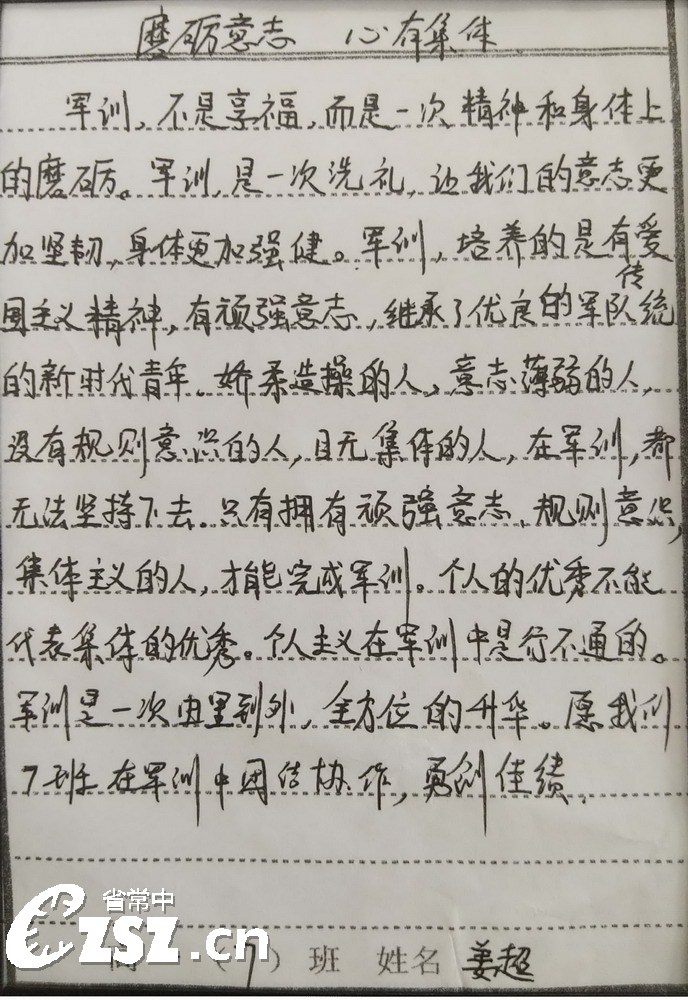 磨砺意志 心有集体
军训,不是享福,而是一次精神和身体上
的磨砺。军训,是一次洗礼,让我们的意志更
加坚韧,身体更加强健。军训,培养的是有爱
国主义精神,有顽强意志,继承了优良的军队传统
的新时代青年.娇柔造操的人,意志薄弱的人,
没有规则意识的人,目无集体的人,在军训,都
无法坚持下去.只有拥有顽强意志、规则意识,
集体主义的人,才能完成军训。个人的优秀不能
代表集体的优秀。个人主义在军训中是行不通的。
军训是一次由里到外,全方位的升华。愿我们
7班在军训中团结协作,勇创佳绩.
省常中
CZSZ.cn
(7)班 姓名 姜超